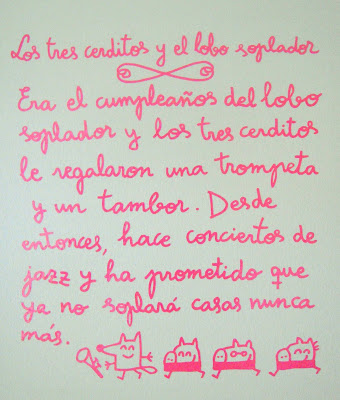 Los tres cerditos y el lobo soplador
Era el cumpleaños del lobo
soplador y los tres cerditos
le regalaron una trompeta
y un tambor. Desde
entonces, hace conciertos de
jazz y ha prometido que
ya no soplará casas nunca
más.